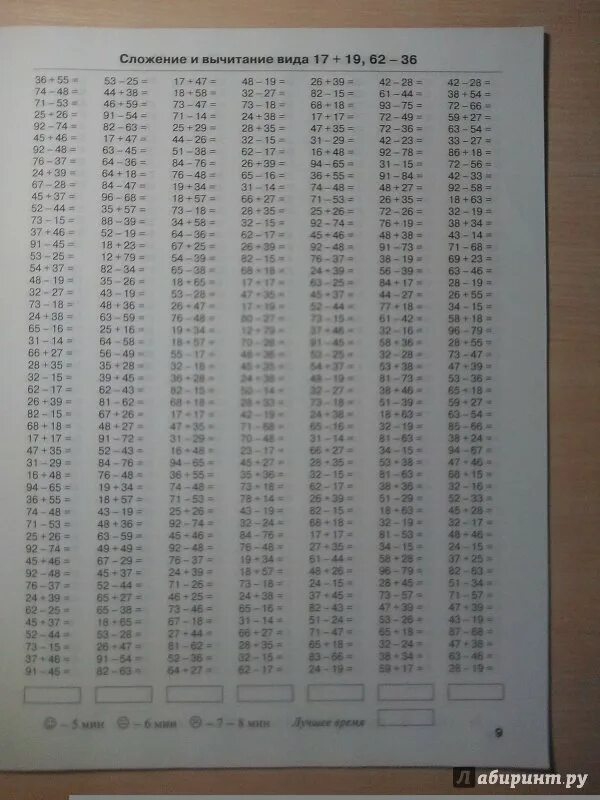 Сложение и вычитание вида 17 + 19, 62 – 36
36 + 55 = 53 – 25 = 17 + 47 = 48 – 19 = 26 + 39 = 42 – 28 = 42 – 28 =
74 – 48 = 44 + 38 = 18 + 58 = 32 – 27 = 82 – 15 = 61 – 44 = 38 + 54 =
71 – 53 = 46 + 59 = 73 – 47 = 73 – 18 = 68 + 18 = 93 – 75 = 72 – 66 =
25 + 26 = 91 – 54 = 71 – 14 = 24 + 38 = 17 + 17 = 72 – 49 = 59 + 27 =
92 – 74 = 82 – 63 = 25 + 29 = 28 + 35 = 47 + 35 = 72 – 36 = 63 – 54 =
45 + 46 = 17 + 47 = 44 – 26 = 32 – 15 = 31 – 29 = 42 – 23 = 33 – 27 =
92 – 48 = 63 – 45 = 51 – 38 = 62 – 17 = 16 + 48 = 92 – 78 = 86 + 18 =
76 – 37 = 64 – 36 = 84 – 76 = 26 + 39 = 94 – 65 = 31 – 15 = 72 – 56 =
24 + 39 = 64 + 18 = 76 – 48 = 65 – 16 = 36 + 55 = 91 – 84 = 42 – 33 =
67 – 28 = 84 – 47 = 19 + 34 = 31 – 14 = 74 – 48 = 48 + 27 = 92 – 58 =
45 + 37 = 96 – 68 = 18 + 57 = 66 + 27 = 71 – 53 = 26 + 35 = 18 + 63 =
52 – 44 = 35 + 57 = 73 – 18 = 28 + 35 = 25 + 26 = 72 – 26 = 32 – 19 =
73 – 15 = 88 – 39 = 34 + 58 = 32 – 15 = 92 – 74 = 76 + 19 = 38 + 34 =
37 + 46 = 52 – 19 = 64 – 36 = 62 – 17 = 45 + 46 = 48 + 38 = 43 – 14 =
91 – 45 = 18 + 23 = 67 + 25 = 26 + 39 = 92 – 48 = 91 – 73 = 71 – 68 =
53 – 25 = 12 + 79 = 54 – 39 = 82 – 15 = 76 – 37 = 38 – 19 = 69 + 23 =
54 + 37 = 82 – 34 = 65 – 38 = 68 + 18 = 24 + 39 = 56 – 39 = 63 – 46 =
48 – 19 = 35 – 26 = 18 + 65 = 17 + 17 = 63 – 25 = 84 + 17 = 28 – 19 =
32 – 27 = 43 – 19 = 53 – 28 = 47 + 35 = 45 + 37 = 44 – 27 = 26 + 55 =
73 – 18 = 48 + 36 = 26 + 47 = 52 – 44 = 77 + 18 = 34 – 16 =
24 + 38 = 63 – 59 = 76 – 48 = 73 – 15 = 61 – 42 = 58 + 18 =
65 – 16 = 25 + 16 = 19 + 34 = 12 + 79 = 37 + 46 = 32 – 16 = 96 – 79 =
31 – 14 = 64 – 58 = 18 + 57 = 70 – 28 = 91 – 45 = 58 + 36 = 28 + 55 =
66 + 27 = 56 – 49 = 55 – 17 = 53 – 25 = 32 – 28 = 73 – 47 =
28 + 35 = 35 + 28 = 32 – 18 = 54 + 37 = 53 + 38 =
32 – 15 = 39 + 45 = 36 + 28 = 48 – 19 = 81 – 73 = 53 – 36 =
62 – 17 = 62 – 43 = 82 – 15 = 32 – 27 = 38 + 46 = 65 + 18 =
26 + 39 = 81 – 62 = 68 + 18 = 28 + 33 = 73 – 18 = 51 – 39 = 59 + 27 =
82 – 15 = 67 + 26 = 17 + 17 = 42 – 19 = 24 + 38 = 18 + 63 = 63 – 54 =
68 + 18 = 48 + 27 = 47 + 35 = 71 – 68 = 65 – 16 = 32 – 19 =
17 + 17 = 91 – 72 = 31 – 29 = 70 – 48 = 31 – 14 = 38 + 24 =
47 + 35 = 52 – 43 = 16 + 48 = 23 – 17 = 66 + 27 = 94 – 67 =
31 – 29 = 84 – 76 = 94 – 65 = 45 + 27 = 28 + 35 = 53 + 38 = 47 + 46 =
16 + 48 = 76 – 48 = 35 + 56 = 35 + 36 = 81 – 63 = 68 + 15 =
94 – 65 = 19 + 34 = 74 – 48 = 73 + 18 = 62 – 17 = 38 + 36 = 32 – 16 =
36 + 55 = 18 + 57 = 71 – 53 = 78 + 14 = 26 + 39 =
74 – 48 = 43 – 19 = 25 + 26 = 43 – 19 = 82 – 15 = 18 + 54 = 45 + 18 =
71 – 53 = 48 + 36 = 92 – 74 = 32 – 24 = 68 + 18 = 32 – 19 =
25 + 26 = 63 – 59 = 45 + 46 = 84 – 76 = 17 + 17 = 81 – 53 = 48 + 46 =
92 – 74 = 49 + 49 = 92 – 48 = 76 – 48 = 27 + 35 = 34 – 15 = 24 – 15 =
45 + 46 = 67 – 29 = 76 – 37 = 19 + 34 = 61 – 44 = 58 + 28 = 37 + 25 =
92 – 48 = 45 + 37 = 24 + 39 = 18 + 57 = 48 + 26 = 96 – 79 =
76 – 37 = 52 – 44 = 71 – 26 = 73 – 18 = 28 + 45 = 51 – 34 =
24 + 39 = 65 + 27 = 45 + 25 = 24 + 38 = 37 + 45 = 73 – 57 =
62 – 25 = 65 – 38 = 73 – 46 = 65 – 16 = 82 – 43 = 47 + 39 = 47 + 39 =
45 + 37 = 18 + 65 = 67 – 18 = 31 – 14 = 51 – 24 = 53 – 26 = 43 – 19 =
52 – 44 = 53 – 28 = 27 + 44 = 66 + 27 = 71 – 47 = 65 + 18 = 87 – 68 =
73 – 15 = 26 + 47 = 81 – 62 = 28 + 35 = 65 + 18 = 32 – 24 =
37 + 46 = 91 – 54 = 52 – 36 = 32 – 15 = 83 – 66 = 38 + 34 = 63 – 46 =
91 – 45 = 82 – 63 = 64 + 27 = 62 – 17 = 24 – 19 = 59 + 17 = 28 – 19 =
– 5 мин – 6 мин – 7 – 8 мин Лучшее время
9
Лабиринт.ру